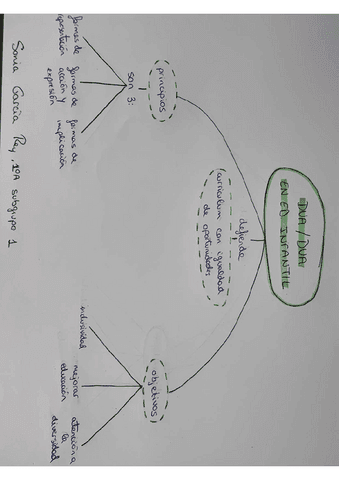 DUA / DUA
EN ED INFANTIL
defiende
curriculum con igualdad
de oportunidades
principios
son 3:
formas de
representación
formas de
acción y
expresión
formas de
implicación
objetivos
inclusividad
mejorar
educación
atención a
la
diversidad
Sonia García Rey, 1ºA subgrupo 1